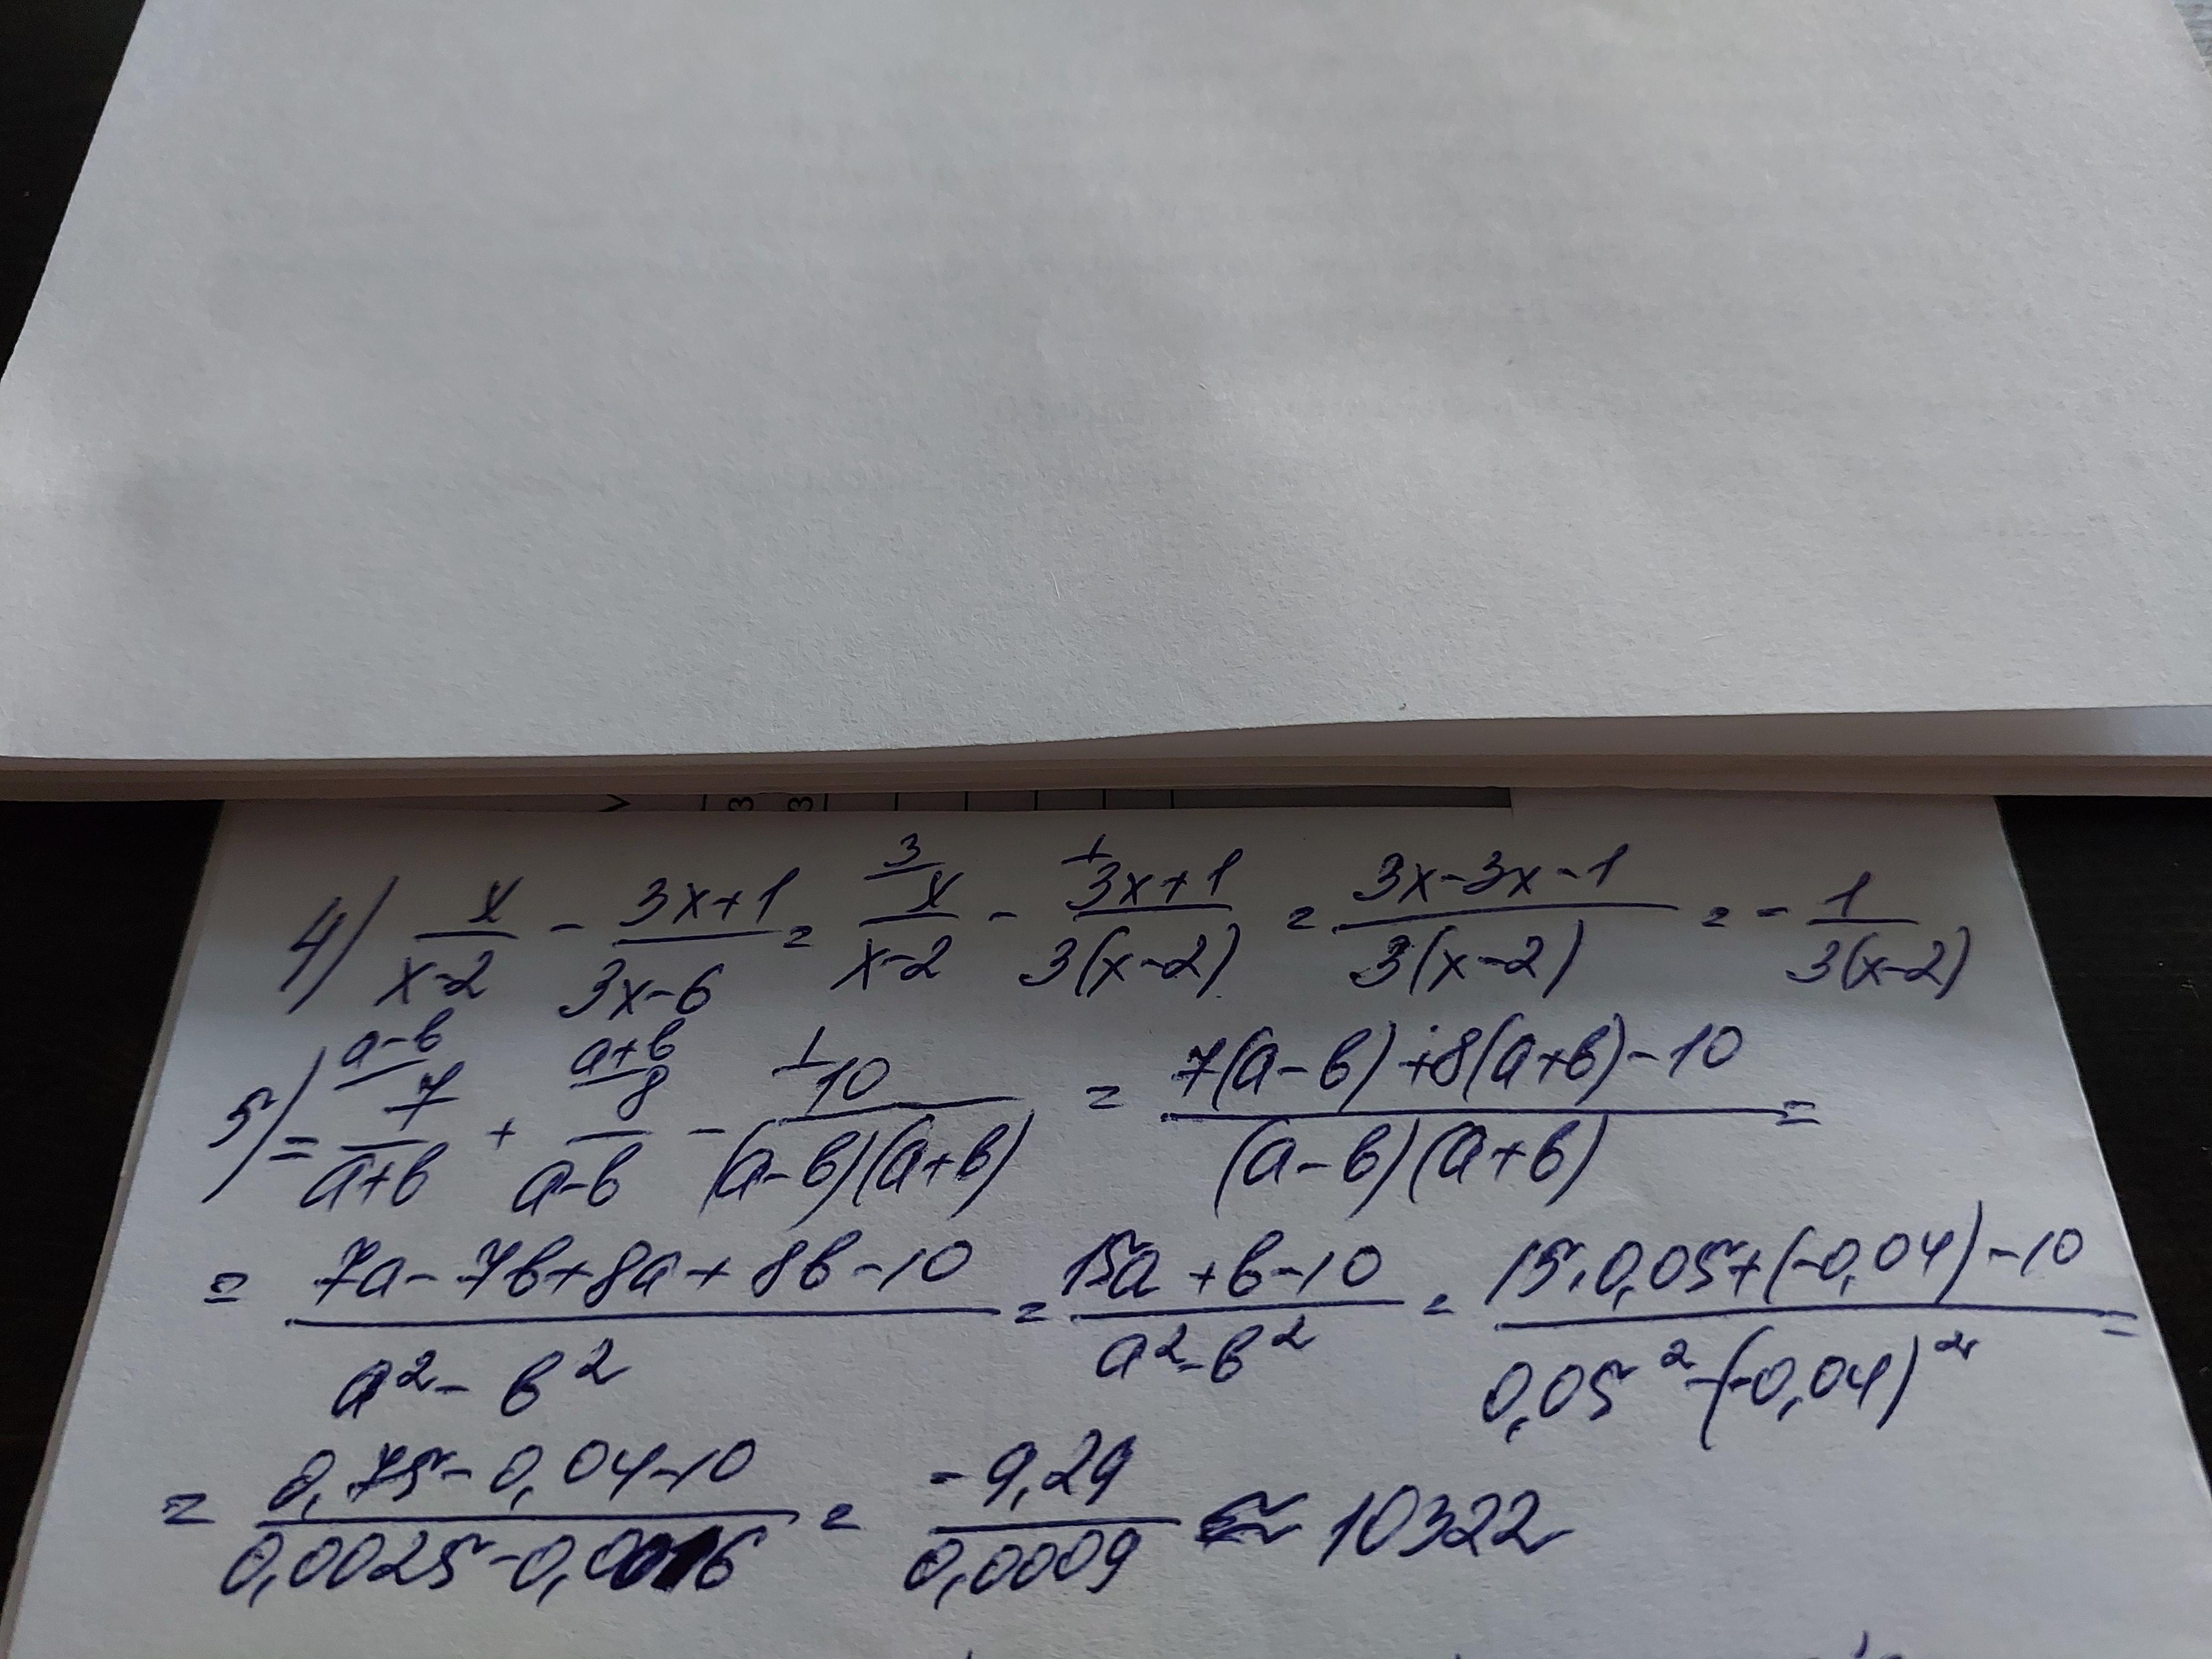 3 3
4) x/(x-2) - (3x+1)/(3x-6) = 3 x/(x-2) - 1 (3x+1)/(3(x-2)) = (3x-3x-1)/(3(x-2)) = - 1/(3(x-2))
5) = a-b 7/(a+b) + a+b 8/(a-b) - 1 10/((a-b)(a+b)) = (7(a-b)+8(a+b)-10)/((a-b)(a+b)) =
= (7a-7b+8a+8b-10)/(a²-b²) = (15a+b-10)/(a²-b²) = (15·0,05+(-0,04)-10)/(0,05²-(-0,04)²) =
= (0,75-0,04-10)/(0,0025-0,0016) = -9,29/0,0009 ≈ 10322